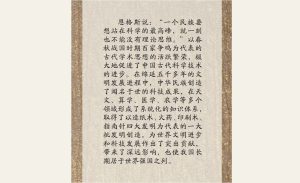 恩格斯说：“一个民族要
想站在科学的最高峰，就一刻
也不能没有理论思维。”以春
秋战国时期百家争鸣为代表的
古代学术思想的活跃繁荣，极
大地促进了中国古代科学技术
的进步。在绵延五千多年的文
明发展进程中，中华民族创造
了闻名于世的科技成果，在天
文、算学、医学、农学等多个
领域形成了系统化的知识体系，
取得了以造纸术、火药、印刷术、
指南针四大发明为代表的一大
批发明创造，为世界文明进步
和科技发展作出了突出贡献，
带来了深远影响，也使我国长
期居于世界强国之列。